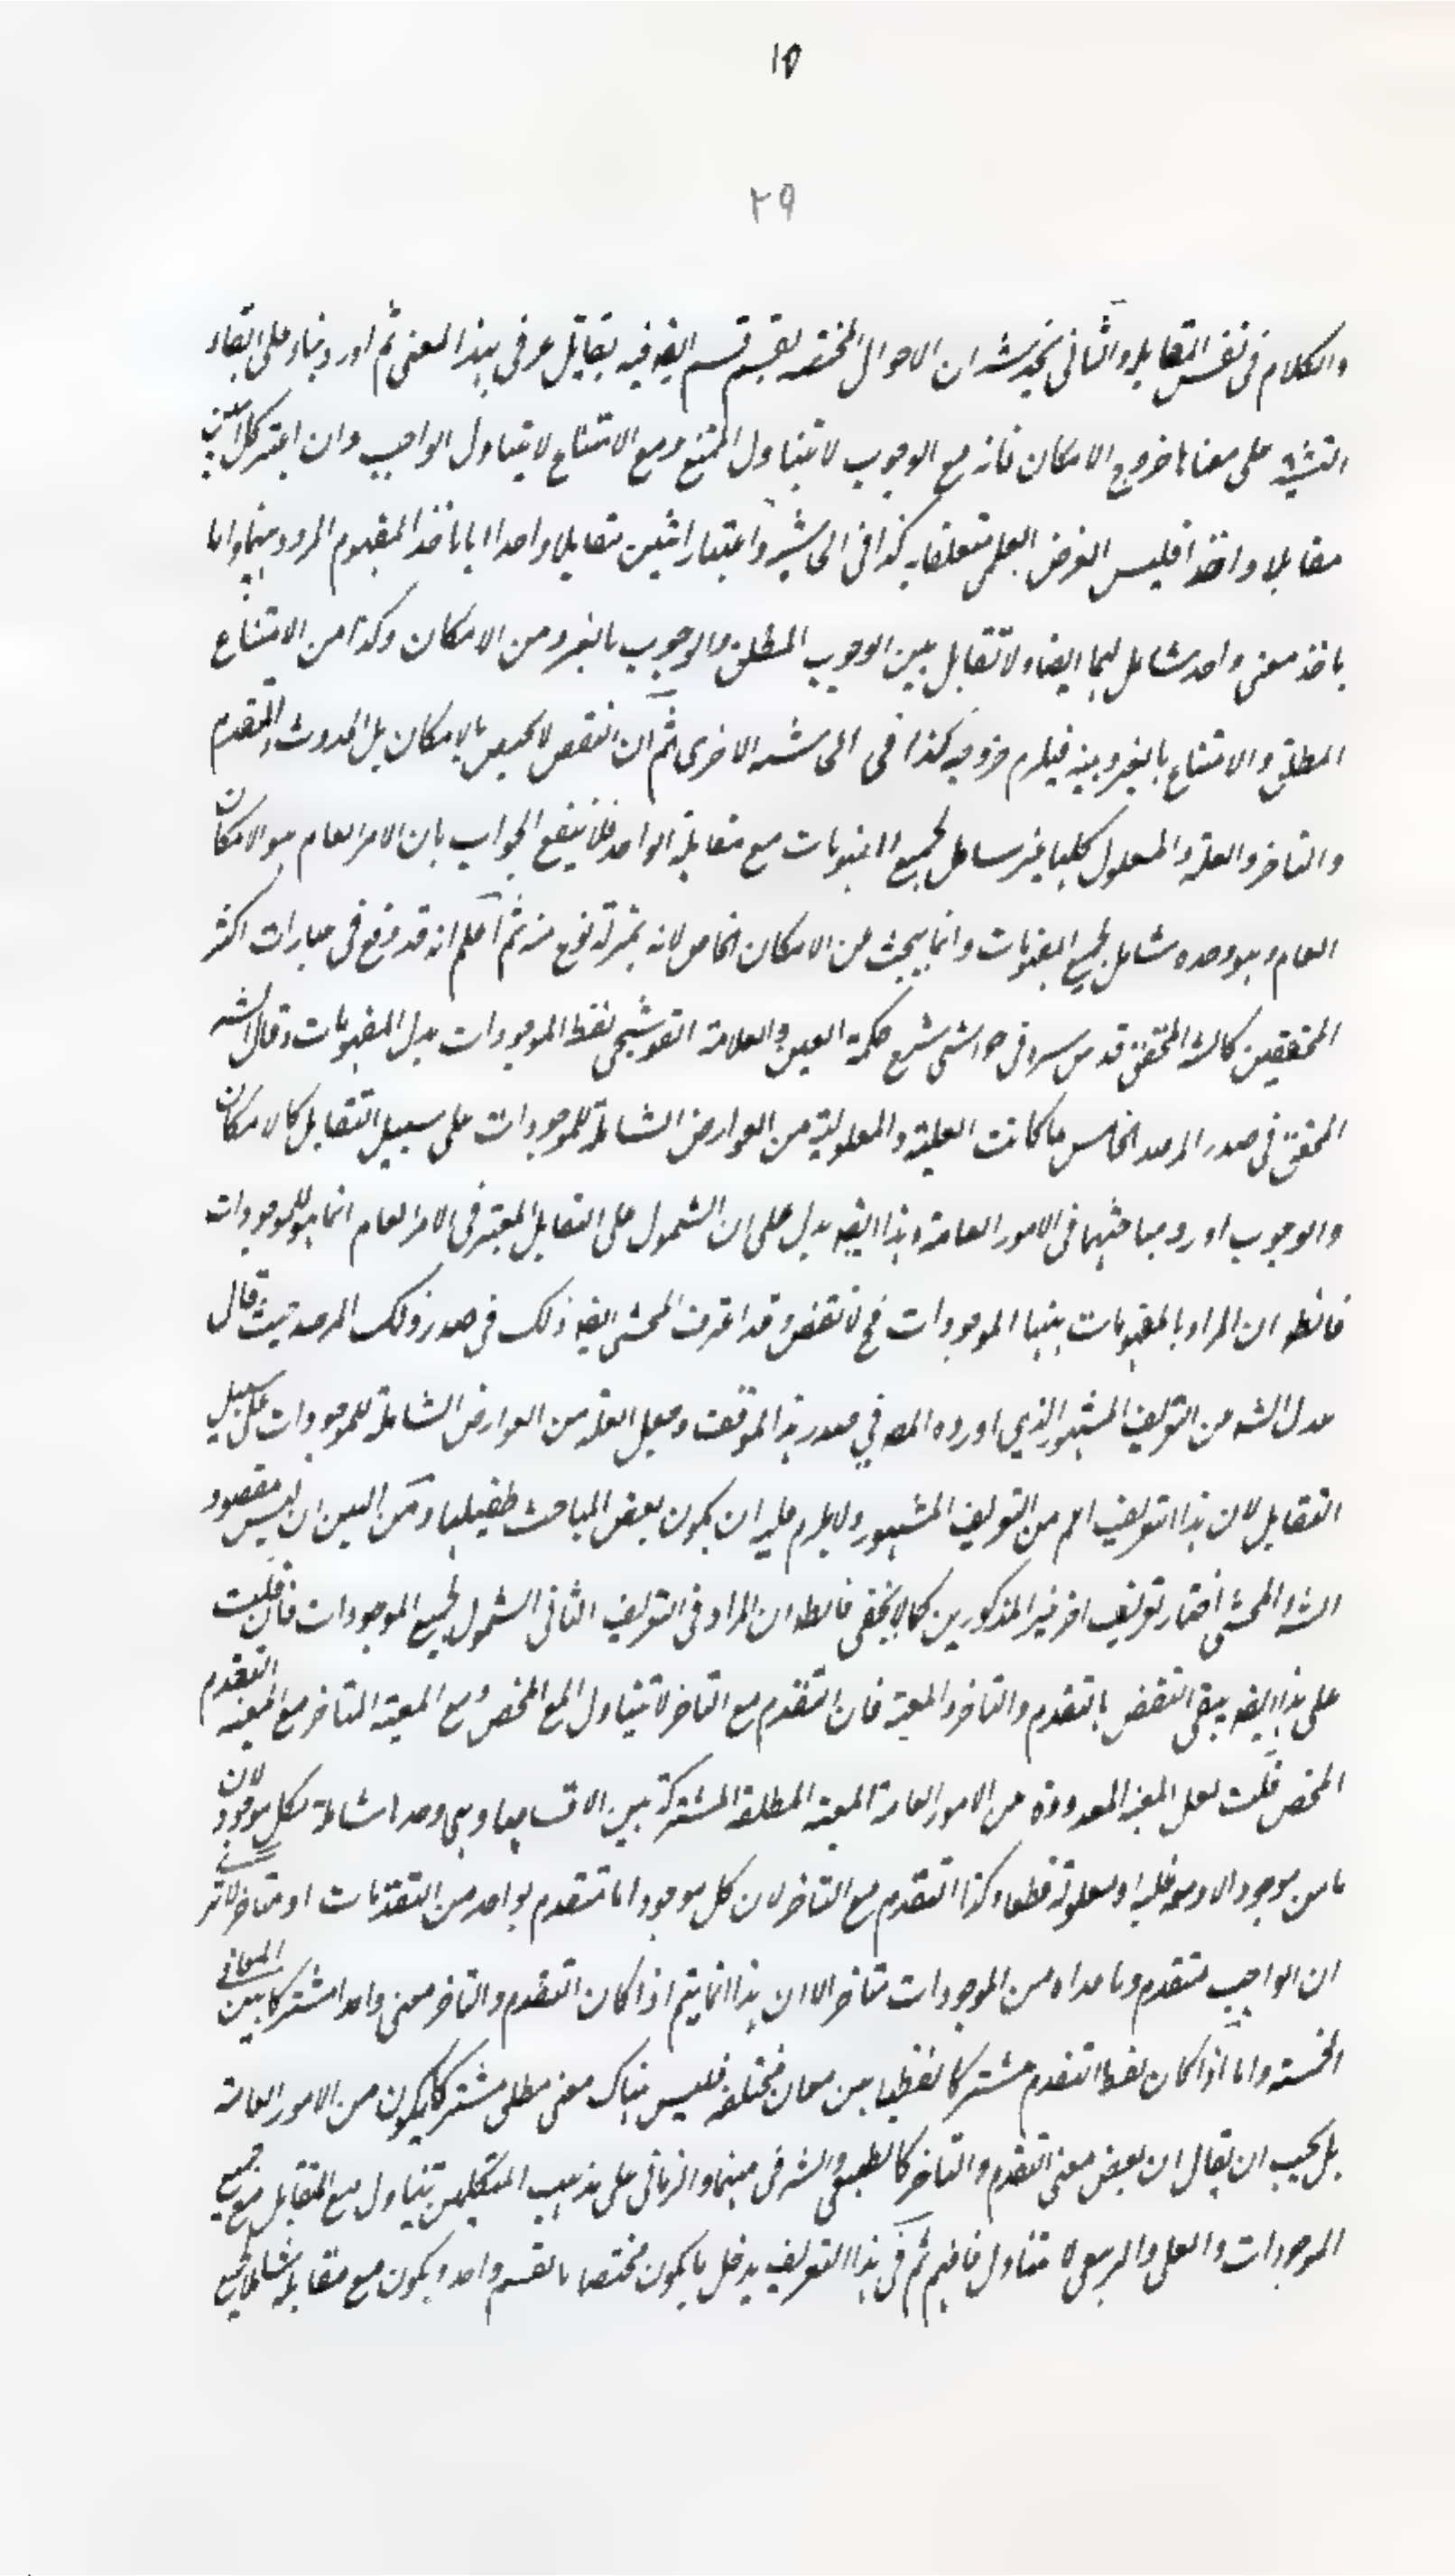 ١٥
٢٩
والكلام فى نفس التقابل والثانى يخدشه ان الاحوال المختصه بقسم قسم ايضه فيه تقابل عرفى بهذا المعنى ثم اورد بناء على ابقاء
على معناها خروج الامكان فانه مع الوجوب لا يتناول الممتنع ومع الامتناع لا يتناول الواجب وان اعتبر كل
مقابلا واخذا فليس الغرض العلمى متعلقا به كذا فى الحاشيه واعتبار اثنين مقابلا واحدا اما باخذ المفهوم المردد بينهما واما
باخذ معنى واحد شامل لهما ايضا ولا تقابل بين الوجوب المطلق والوجوب بالغير ومن الامكان وكذا من الامتناع
المطلق والامتناع بالغير وبينه فيلزم خروجه كذا فى الحاشيه الاخرى ثم ان النقض لا يختص بالامكان بل الحدوث والتقدم
والتاخر والعلة والمعلول كلها غير شامل لجميع المفهومات مع مقابلة الواحد فلا ينفع الجواب بان الامر العام هو الامكان
العام وهو وحده شامل لجميع المفهومات وانما يبحث عن الامكان الخاص لانه بمنزلة نوع منه ثم اعلم انه قد وقع فى عبارات اكثر
المحققين كالشه المحقق قدس سره فى حواشى شرح حكمة العين والعلامة القوشجى لفظ الموجودات بدل المفهومات وقال الشه
المحقق فى صدر المرصد الخامس ما كانت العلية والمعلولية من العوارض الشاملة للموجودات على سبيل التقابل كالامكان
والوجوب اورد مباحثهما فى الامور العامة وهذا ايضه يدل على ان الشمول على التقابل المعتبر فى الامر العام انما هو للموجودات
فالظه ان المراد بالمفهومات ههنا الموجودات فح لا نقض وقد اعترف المحشى ايضه ذلك فى صدر ذلك المرصد حيث قال
عدل الشه من التعريف المشهور الذي اورده المصه في صدر هذا الموقف وجعل العلة من العوارض الشاملة للموجودات على سبيل
التقابل لان هذا التعريف اعم من التعريف المشهور ولا يلزم عليه ان يكون بعض المباحث طفيليا ومن البين ان ليس مقصود
الشه المحشى اختيار تعريف اخر غير المذكورين كما لا يخفى فالظه ان المراد فى التعريف الثانى الشمول لجميع الموجودات فان قلت
على هذا ايضه يبقى النقض بالتقدم والتاخر والمعية فان التقدم مع التاخر لا يتناول المع المحض ومع المعية المتاخر مع المعية التقدم
المحض قلت لعل المعية المعدودة من الامور العامة المعية المطلقة المشتركة بين الاقسام وهى وحدها شاملة لكل موجود لان
ما من موجود الا ومعه علته او معلوله قطعا وكذا التقدم مع التاخر لان كل موجود اما متقدم بواحد من التقدمات او متاخر
ان الواجب متقدم وما عداه من الموجودات متاخر الا ان هذا انما يتم اذا كان التقدم والتاخر معنى واحدا مشتركا بين المعانى
الخمسة واما اذا كان لفظ التقدم مشتركا لفظيا بين معان مختلفة فليس هناك معنى مطلق مشتركا يكون من الامور العامة
بل يجب ان يقال ان بعض معنى التقدم والتاخر كالطبيعى والشرفى منهما والزمانى على مذهب المتكلمين يتناول مع المقابل جميع
الموجودات والعلى والرتبى لا يتناول فافهم ثم فى هذا التعريف يدخل ما يكون مختصا بالقسم واحد ويكون مع مقابله شاملا لجميع